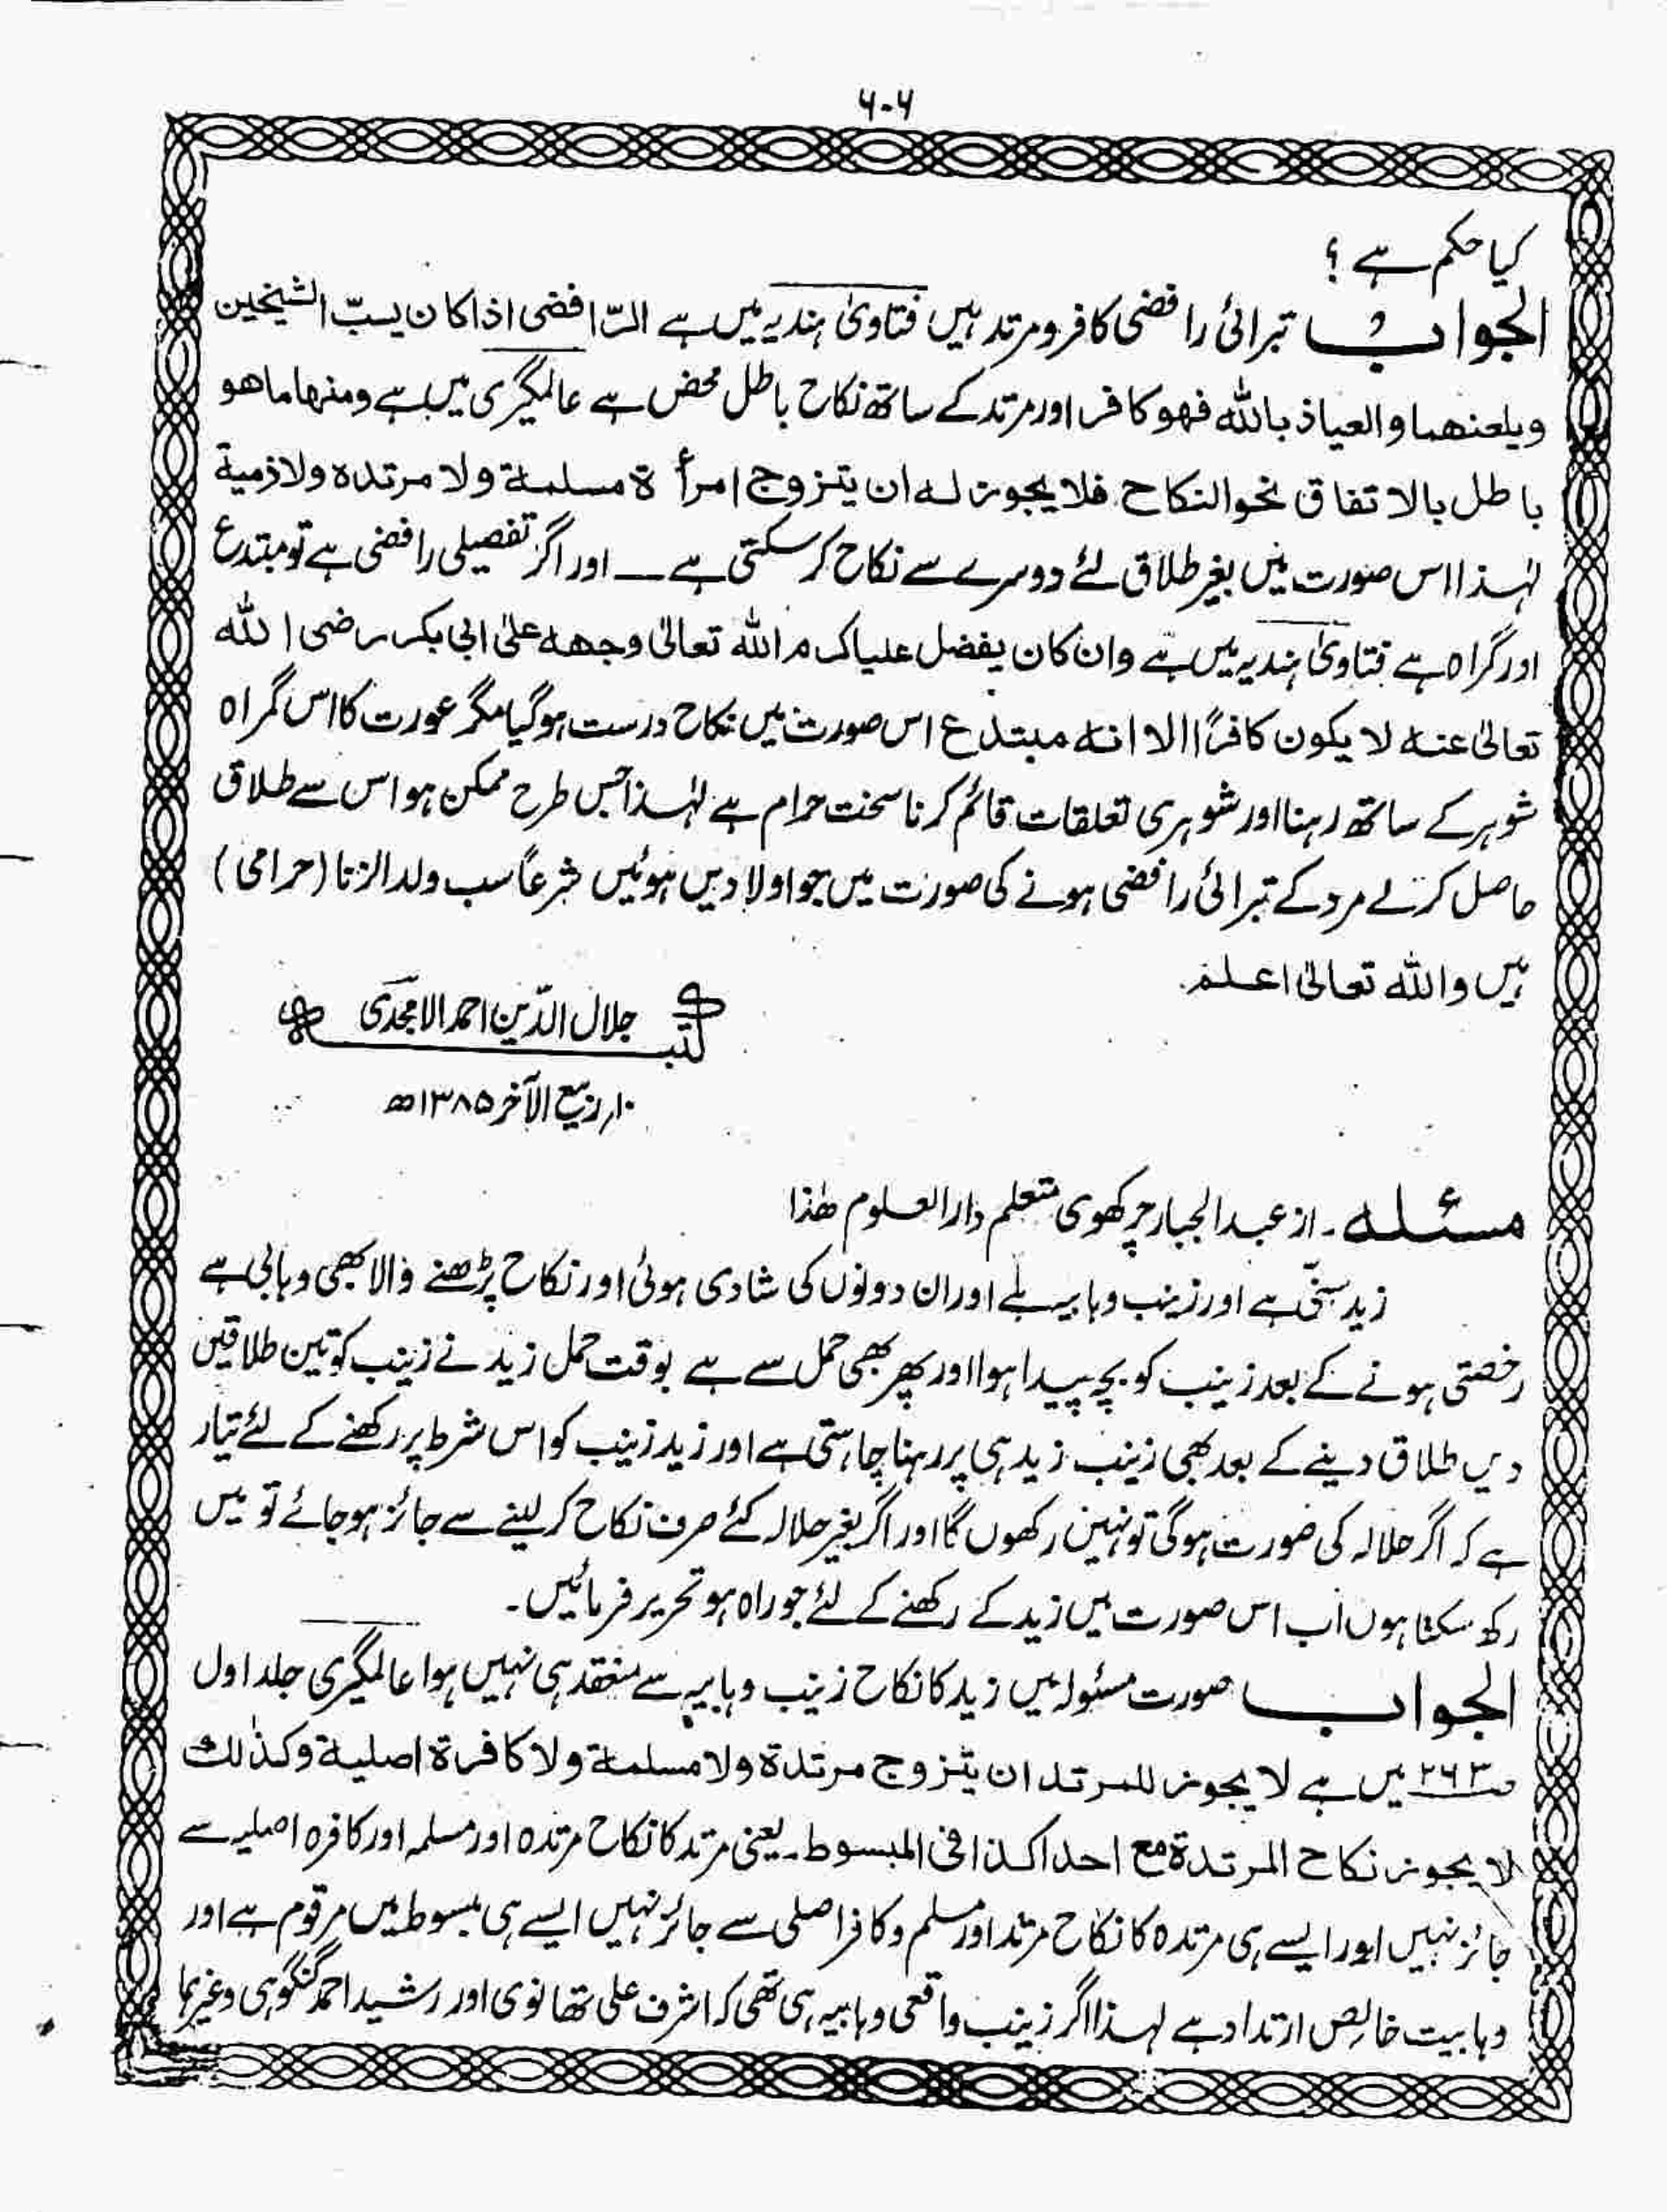 ۶۰۶
کیا حکم ہے ؟
الجواب تبرائی رافضی کافر و مرتد ہیں فتاویٰ ہندیہ میں ہے الرّافضی اذا کان یسبّ الشیخین
ویلعنھما والعیاذ باللہ فھو کافر اور مرتد کے ساتھ نکاح باطل محض ہے عالمگیری میں ہے ومنھا ما ھو
باطل بالاتفاق نحو النکاح فلا یجوز لہ ان یتزوج امرأة مسلمة ولا مرتدہ ولا ذمیة
لہٰذا اس صورت میں بغیر طلاق لئے دوسرے سے نکاح کر سکتی ہے ــ اور اگر تفصیلی رافضی ہے تو مبتدع
اور گمراہ ہے فتاویٰ ہندیہ میں ہے وان کان یفضل علیا کرم اللہ تعالیٰ وجھہ علیٰ ابی بکر رضی اللہ
تعالیٰ عنہ لا یکون کافرًا الا انہ مبتدع اس صورت میں نکاح درست ہوگیا مگر عورت کا اس گمراہ
شوہر کے ساتھ رہنا اور شوہری تعلقات قائم کرنا سخت حرام ہے لہٰذا جس طرح ممکن ہو اس سے طلاق
حاصل کرلے مرد کے تبرائی رافضی ہونے کی صورت میں جو اولادیں ہوئیں شرعًا سب ولد الزنا (حرامی)
ہیں واللہ تعالیٰ اعلم۔
کتبہ جلال الدّین احمد الامجدی
۱۰ ربیع الآخر ۱۳۸۵ھ
مسئلہ ۔ از عبد الجبار چرکھوی متعلم دار العلوم ھٰذا
زید سنّی ہے اور زینب وہابیہ ہے اور ان دونوں کی شادی ہوئی اور نکاح پڑھنے والا بھی وہابی ہے
رخصتی ہونے کے بعد زینب کو بچہ پیدا ہوا اور پھر بھی حمل سے ہے بوقت حمل زید نے زینب کو تین طلاقیں
دیں طلاق دینے کے بعد بھی زینب زید ہی پر رہنا چاہتی ہے اور زید زینب کو اس شرط پر رکھنے کے لئے تیار
ہے کہ اگر حلالہ کی ضرورت ہوگی تو نہیں رکھوں گا اور اگر بغیر حلالہ کئے صرف نکاح کر لینے سے جائز ہو جائے تو میں
رکھ سکتا ہوں اب اس صورت میں زید کے رکھنے کے لئے جو راہ ہو تحریر فرمائیں۔
الجواب صورت مسئولہ میں زید کا نکاح زینب وہابیہ سے منعقد ہی نہیں ہوا عالمگیری جلد اول
ص۲۶۳ میں ہے لا یجوز للمرتد ان یتزوج مرتدة ولا مسلمة ولا کافرة اصلیة وکذٰلک
لا یجوز نکاح المرتدة مع احد اکذا فی المبسوط۔ یعنی مرتد کا نکاح مرتدہ اور مسلمہ اور کافرہ اصلیہ سے
جائز نہیں اور ایسے ہی مرتدہ کا نکاح مرتد اور مسلم و کافر اصلی سے جائز نہیں ایسے ہی مبسوط میں مرقوم ہے اور
وہابیت خالص ارتداد ہے لہذا اگر زینب واقعی وہابیہ ہی تھی کہ اشرف علی تھانوی اور رشید احمد گنگوہی وغیرہما